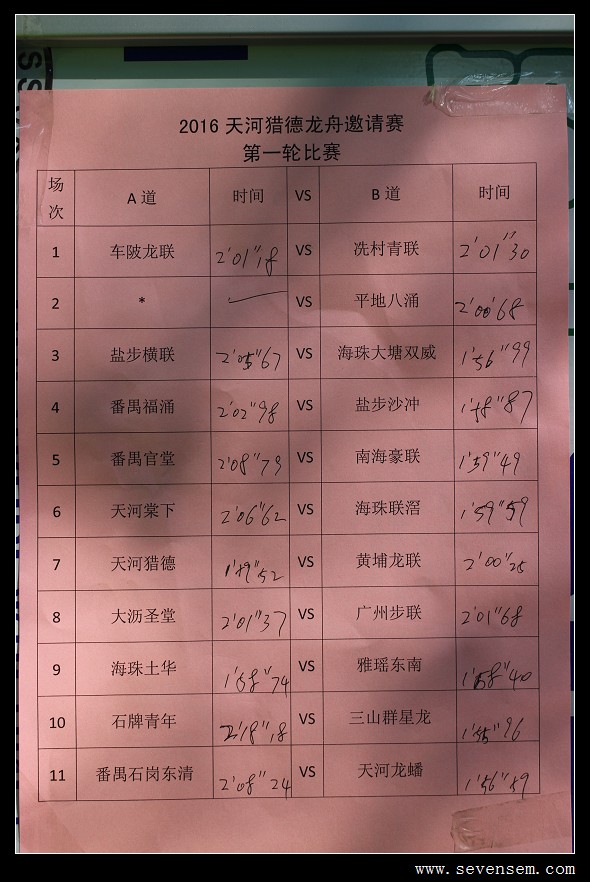 2016 天河猎德龙舟邀请赛
第一轮比赛
场次 A 道 时间 VS B 道 时间
1 车陂龙联 2'01"18 VS 冼村青联 2'01"30
2 * VS 平地八涌 2'00'68
3 盐步横联 2'05"67 VS 海珠大塘双威 1'56"99
4 番禺福涌 2'02"98 VS 盐步沙冲 1'58"87
5 番禺官堂 2'08"79 VS 南海豪联 1'59"49
6 天河棠下 2'06"62 VS 海珠联滘 1'59"59
7 天河猎德 VS 黄埔龙联 2'00"28
8 大沥圣堂 2'01"37 VS 广州步联 2'01"68
9 海珠土华 1'58"74 VS 雅瑶东南 1'58"40
10 石牌青年 2'18"18 VS 三山群星龙 1'55"96
11 番禺石岗东清 2'08"24 VS 天河龙蟠 1'56"59
www.sevensem.com